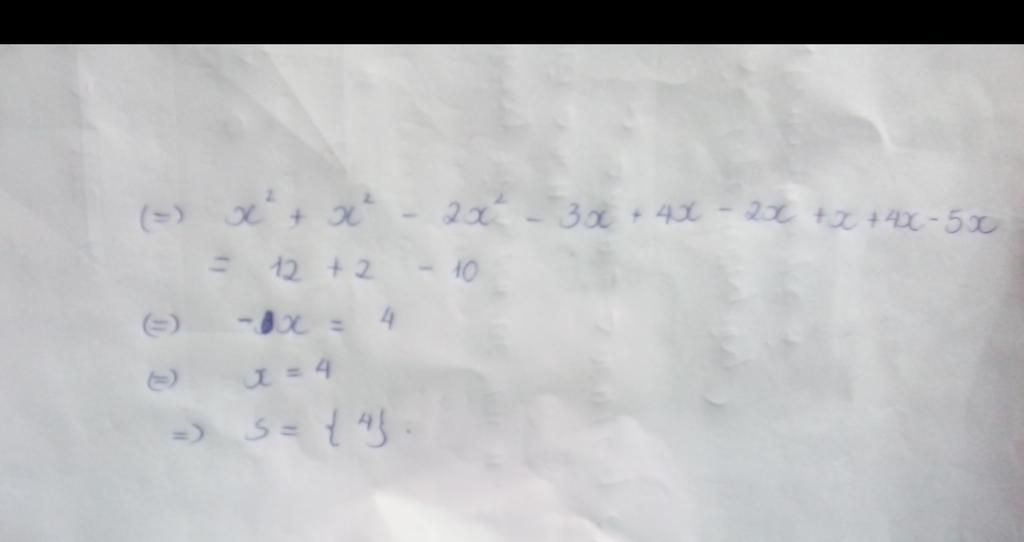 (=) x² + x² - 2x² - 3x + 4x - 2x + x + 4x - 5x
= 12 + 2 - 10
(=) -x = 4
(=) x = 4
=) S = { 4 } .